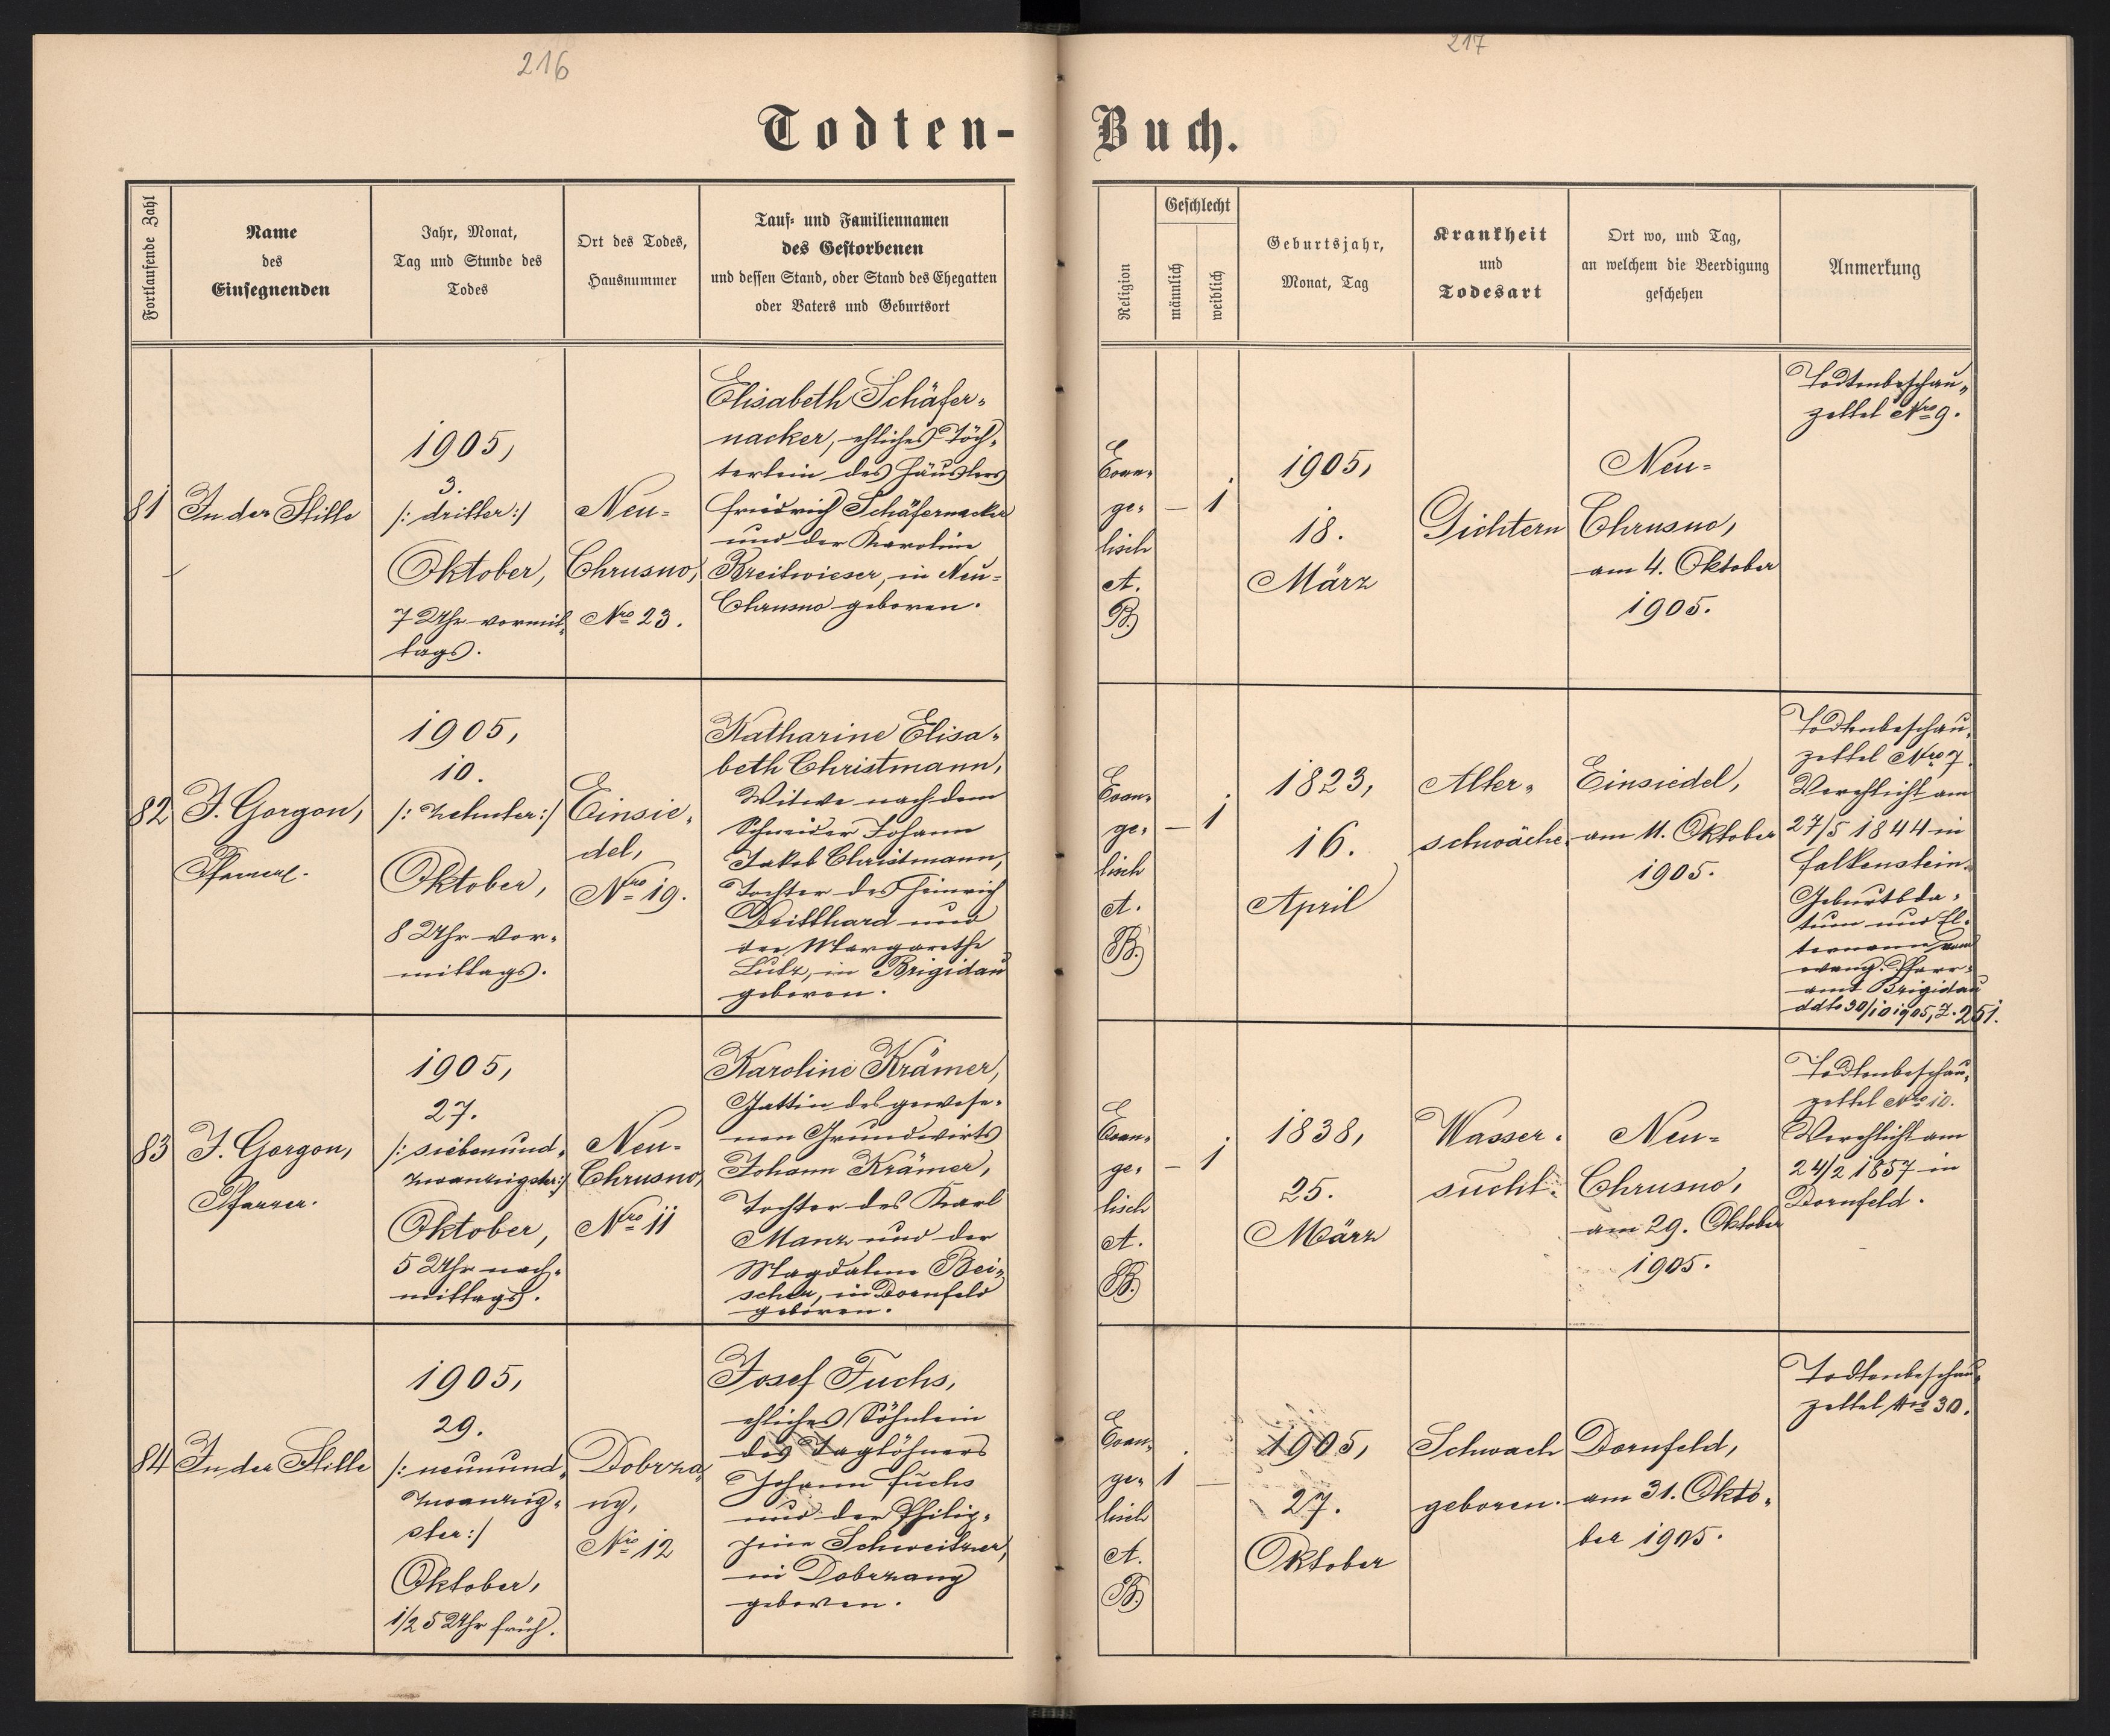 216
217
Todten-
Buch.
Fortlaufende Zahl
Name
des
Einsegnenden
Jahr, Monat,
Tag und Stunde des
Todes
Ort des Todes,
Hausnummer
Tauf- und Familiennamen
des Gestorbenen
und dessen Stand, oder Stand des Ehegatten
oder Vaters und Geburtsort
Religion
Geschlecht
männlich
weiblich
Geburtsjahr,
Monat, Tag
Krankheit
und
Todesart
Ort wo, und Tag,
an welchem die Beerdigung
geschehen
Anmerkung
81
In der Stille
1905,
3.
/: dritter :/
Oktober,
7 Uhr vormit-
tags.
Neu-
Chrusno,
Nro 23.
Elisabeth Schäfer-
nacker, ehliches Töch-
terlein des Häuslers
Friedrich Schäfernacker
und der Karoline
Breitwieser, in Neu-
Chrusno geboren.
Evan-
ge-
lisch
A.
B.
— 1
1905,
18.
März
Gichtern
Neu-
Chrusno,
am 4. Oktober
1905.
Todtenbeschau-
zettel Nro 9.
82
J. Gorgon,
Pfarrer.
1905,
10.
/: zehnter :/
Oktober,
8 Uhr vor-
mittags.
Einsie-
del,
Nro 19.
Katharine Elisa-
beth Christmann,
Witwe nach dem
Schneider Johann
Jakob Christmann,
Tochter des Heinrich
und
der Margarethe
Lutz, in Brigidau
geboren.
Evan-
ge-
lisch
A.
B.
— 1
1823,
16.
April
Alter-
schwäche.
Einsiedel,
am 11. Oktober
1905.
Todtenbeschau-
zettel Nro 7.
Verehlicht am
27/5 1844 in
Falkenstein.
Geburtsda-
tum und El-
ternnamen vom
evang. Pfarr-
amt Brigidau
ddto 30/10 1905, Z. 251.
83
J. Gorgon,
Pfarrer.
1905,
27.
/: siebenund-
zwanzigster :/
Oktober,
5 Uhr nach-
mittags.
Neu-
Chrusno,
Nro 11
Karoline Krämer,
Gattin des gewese-
nen Grundwirts
Johann Krämer,
Tochter des Karl
Manz und der
Magdalene Bei-
scher, in Dornfeld
geboren.
Evan-
ge-
lisch
A.
B.
— 1
1838,
25.
März
Wasser-
sucht.
Neu-
Chrusno,
am 29. Oktober
1905.
Todtenbeschau-
zettel Nro 10.
Verehlicht am
24/2 1857 in
Dornfeld.
84
In der Stille
1905,
29.
/: neunund-
zwanzig-
ster :/
Oktober,
1/2 5 Uhr früh.
Dobrza-
ny,
Nro 12
Josef Fuchs,
ehliches Söhnlein
des Taglöhners
Johann Fuchs
und der Philip-
pine Schweitzer,
in Dobrzany
geboren.
Evan-
ge-
lisch
A.
B.
1 —
1905,
27.
Oktober
Schwach
geboren.
Dornfeld,
am 31. Okto-
ber 1905.
Todtenbeschau-
zettel Nro 30.